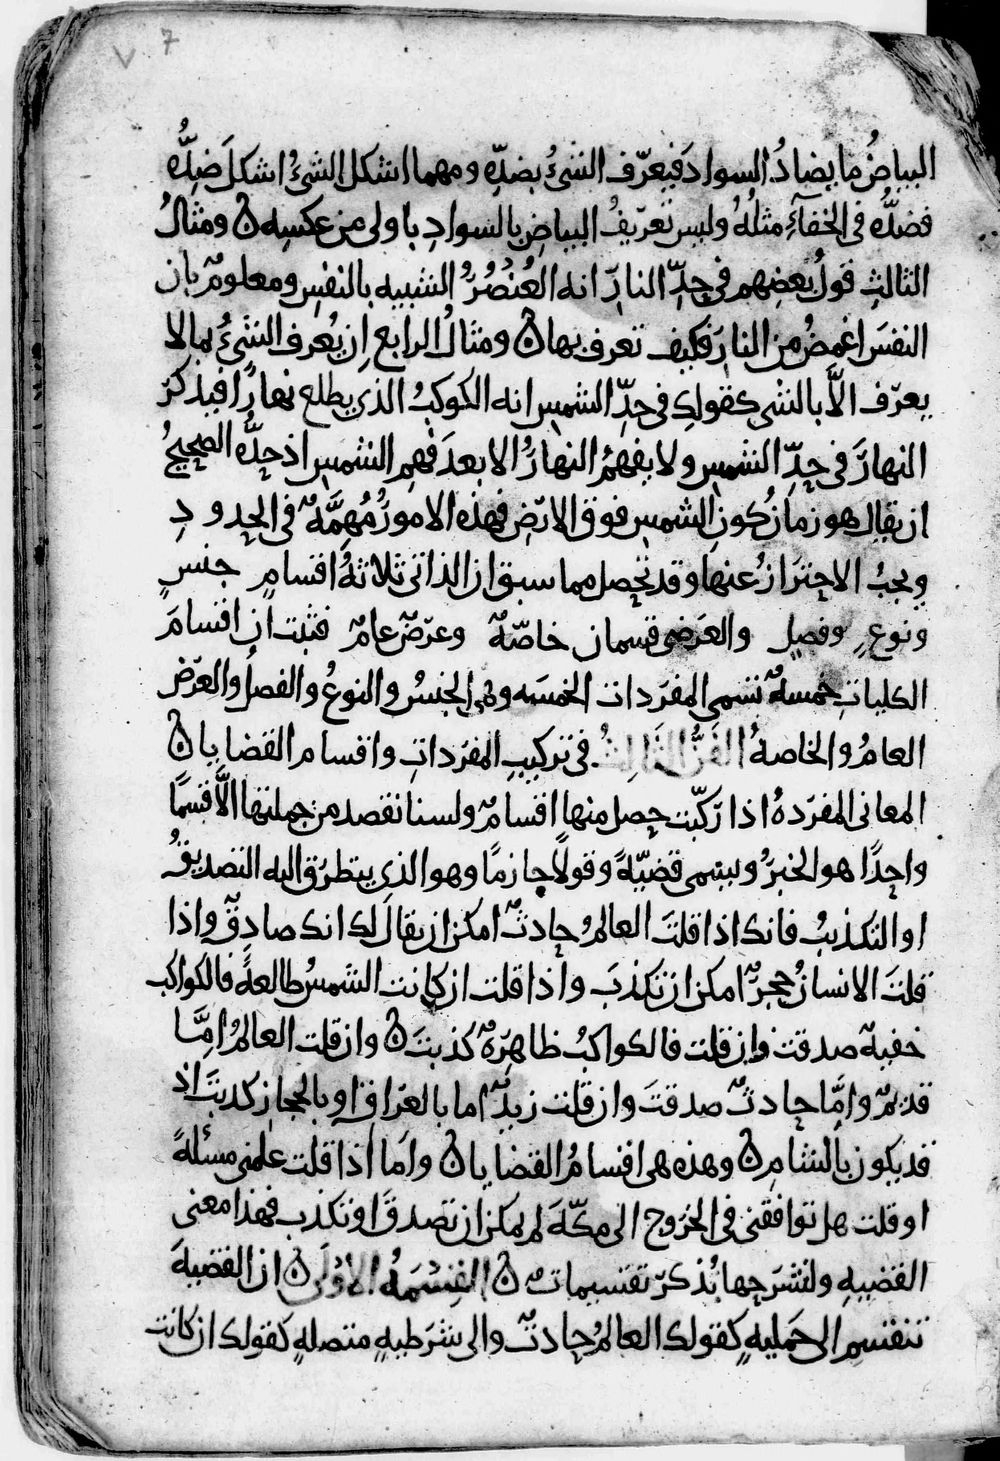 7 ٧
البياضُ ما يضادُ السوادَ فيعرّف الشىُ بضدّهِ ومهما اشكل الشىُ اشكلَ ضِدُّه
فضدُّه فى الخفآءِ مثلُهُ وليس تعريفُ البياضِ بالسوادِ باولى من عكسِهِ ۞ ومثالُ
الثالثِ قولُ بعضِهم فى حِدِّ النارِ انه العُنْصُرُ الشبيه بالنفسِ ومعلومٌ بان
النفسَ اغمضُ من النارِ فكيف تعرف بها ۞ ومثالُ الرابع ان يُعرف الشىُ بما لا
يعرّف الاَّ بالشى كقولك فى حِدِّ الشمس انه الكوكبُ الذى يطلع نهارًا فيذكرّ
النهارَ فى حِدِّ الشمس ولا يفهمُ النهارُ الا بعدَ فهمِ الشمس اذ حِدُّه الصحيحُ
ان يقال هو زمانُ كونِ الشمس فوق الارض فهذه الامورُ مُهِمَّةٌ فى الحدودِ
ويجبُ الاحتِرَازُ عنها وقد تحصل مما سبق ان الذاتى ثلاثةُ اقسامٍ جنسٍ
ونوعٍ وفصلٍ والعَرَضِى قسمان خاصّةٌ وعرَضٌ عامٌ فثبت ان اقسامَ
الكلياتِ خمسةٌ تسمى المفردات الخمسَه وهى الجنسُ والنوعُ والفصلُ والعرَض
العامُ والخاصةُ الفَنُّ الثَالِثُ فى تركيبِ المفرداتِ واقسام القضايا ۞
المعانى المفردهُ اذا ركبّت حِصل منها اقسامٌ ولسنا نقصد من جملتها الاَّ قسمًا
واحِدًا هو الخبرُ ويسمى قضيّةً وقولاً جازمًا وهو الذى يتطرق اليه التصديقُ
او التكذيبُ فانك اذا قلتَ العالمُ حِادثٌ امكن ان يقالَ لك انك صادقٌ واذا
قلتَ الانسانُ حجرٌ امكن ان تكذبَ واذا قلت ان كانت الشمسُ طالعةً فالكواكب
خفيةٌ صدقت وان قلت فالكواكبُ ظاهِرَةٌ كذبتَ ۞ وان قلت العالمُ امِّا
قديمٌ وامِّا حِادثٌ صدقتَ وان قلت زيدٌ اما بالعراقِ او بالحجاز كذبتَ اذ
قد يكون بالشام ۞ وهذه هى اقسامُ القضايا ۞ واَما اذا قلت علمنى مسئلةً
او قلت هل توافقنى فى الخروج الى مكّةَ لم يمكن ان تصدقَ او تكذب فهذا معنى
القضيهِ ولنشرَحِها بذكرّ تقسيماتٌ ۞ القِسْمَةُ الاُوْلَى ۞ ان القضيةَ
تنقسم الى حَمليهٍ كقولك العالمُ حِادثٌ والى شرَطيهٍ متصلهٍ كقولك ان كانت